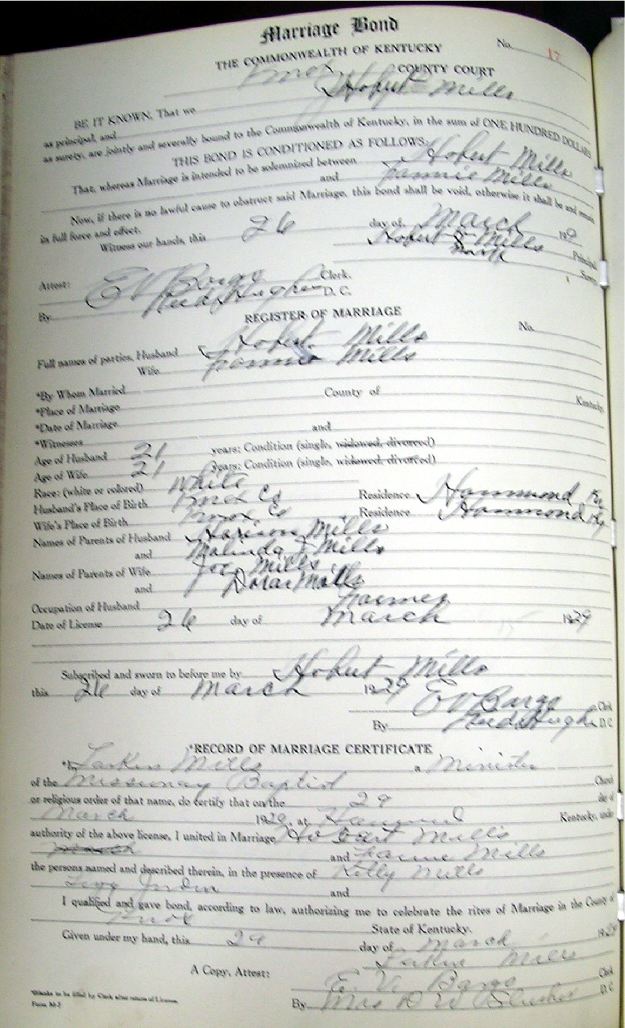 Marriage Bond
THE COMMONWEALTH OF KENTUCKY No. 17
Knox COUNTY COURT
BE IT KNOWN, That we Hobert Mills
as principal, and
as surety, are jointly and severally bound to the Commonwealth of Kentucky, in the sum of ONE HUNDRED DOLLARS
THIS BOND IS CONDITIONED AS FOLLOWS:
That, whereas Marriage is intended to be solemnized between Hobert Mills
and Fannie Mills
Now, if there is no lawful cause to obstruct said Marriage, this bond shall be void, otherwise it shall be and remain
in full force and effect.
Witness our hands, this 26 day of March 192
Hobert Mills Principal
mark Surety
Attest: E V Bargo Clerk.
By Hughes D. C.
REGISTER OF MARRIAGE
No.
Full names of parties, Husband Hobert Mills
Wife Fannie Mills
*By Whom Married
*Place of Marriage County of Kentucky
*Date of Marriage
*Witnesses and
Age of Husband 21 years; Condition (single, widowed, divorced)
Age of Wife 21 years; Condition (single, widowed, divorced)
Race: (white or colored) White
Husband's Place of Birth Knox Co Residence Hammond Ky
Wife's Place of Birth Knox Co Residence Hammond Ky
Names of Parents of Husband Harison Mills
and Malinda J Mills
Names of Parents of Wife Joe Mills
and Mills
Occupation of Husband Farmer
Date of License 26 day of March 1929
Subscribed and sworn to before me by Hobert Mills
this 26 day of March 1929
E V Bargo Clerk
By Hughes D. C.
*RECORD OF MARRIAGE CERTIFICATE
*I, Larkin Mills a Minister
of the Missionary Baptist Church
or religious order of that name, do certify that on the 29 day of
March 1929, at Hammond Kentucky, under
authority of the above license, I united in Marriage Hobart Mills
and Fannie Mills
the persons named and described therein, in the presence of Kelly Mills
and
I qualified and gave bond, according to law, authorizing me to celebrate the rites of Marriage in the County of
Knox State of Kentucky.
Given under my hand, this 29 day of March 1929
Larkin Mills
A Copy, Attest: E. V. Bargo Clerk
By Mrs D W Slusher D. C.
*Blanks to be filled by Clerk after return of License.